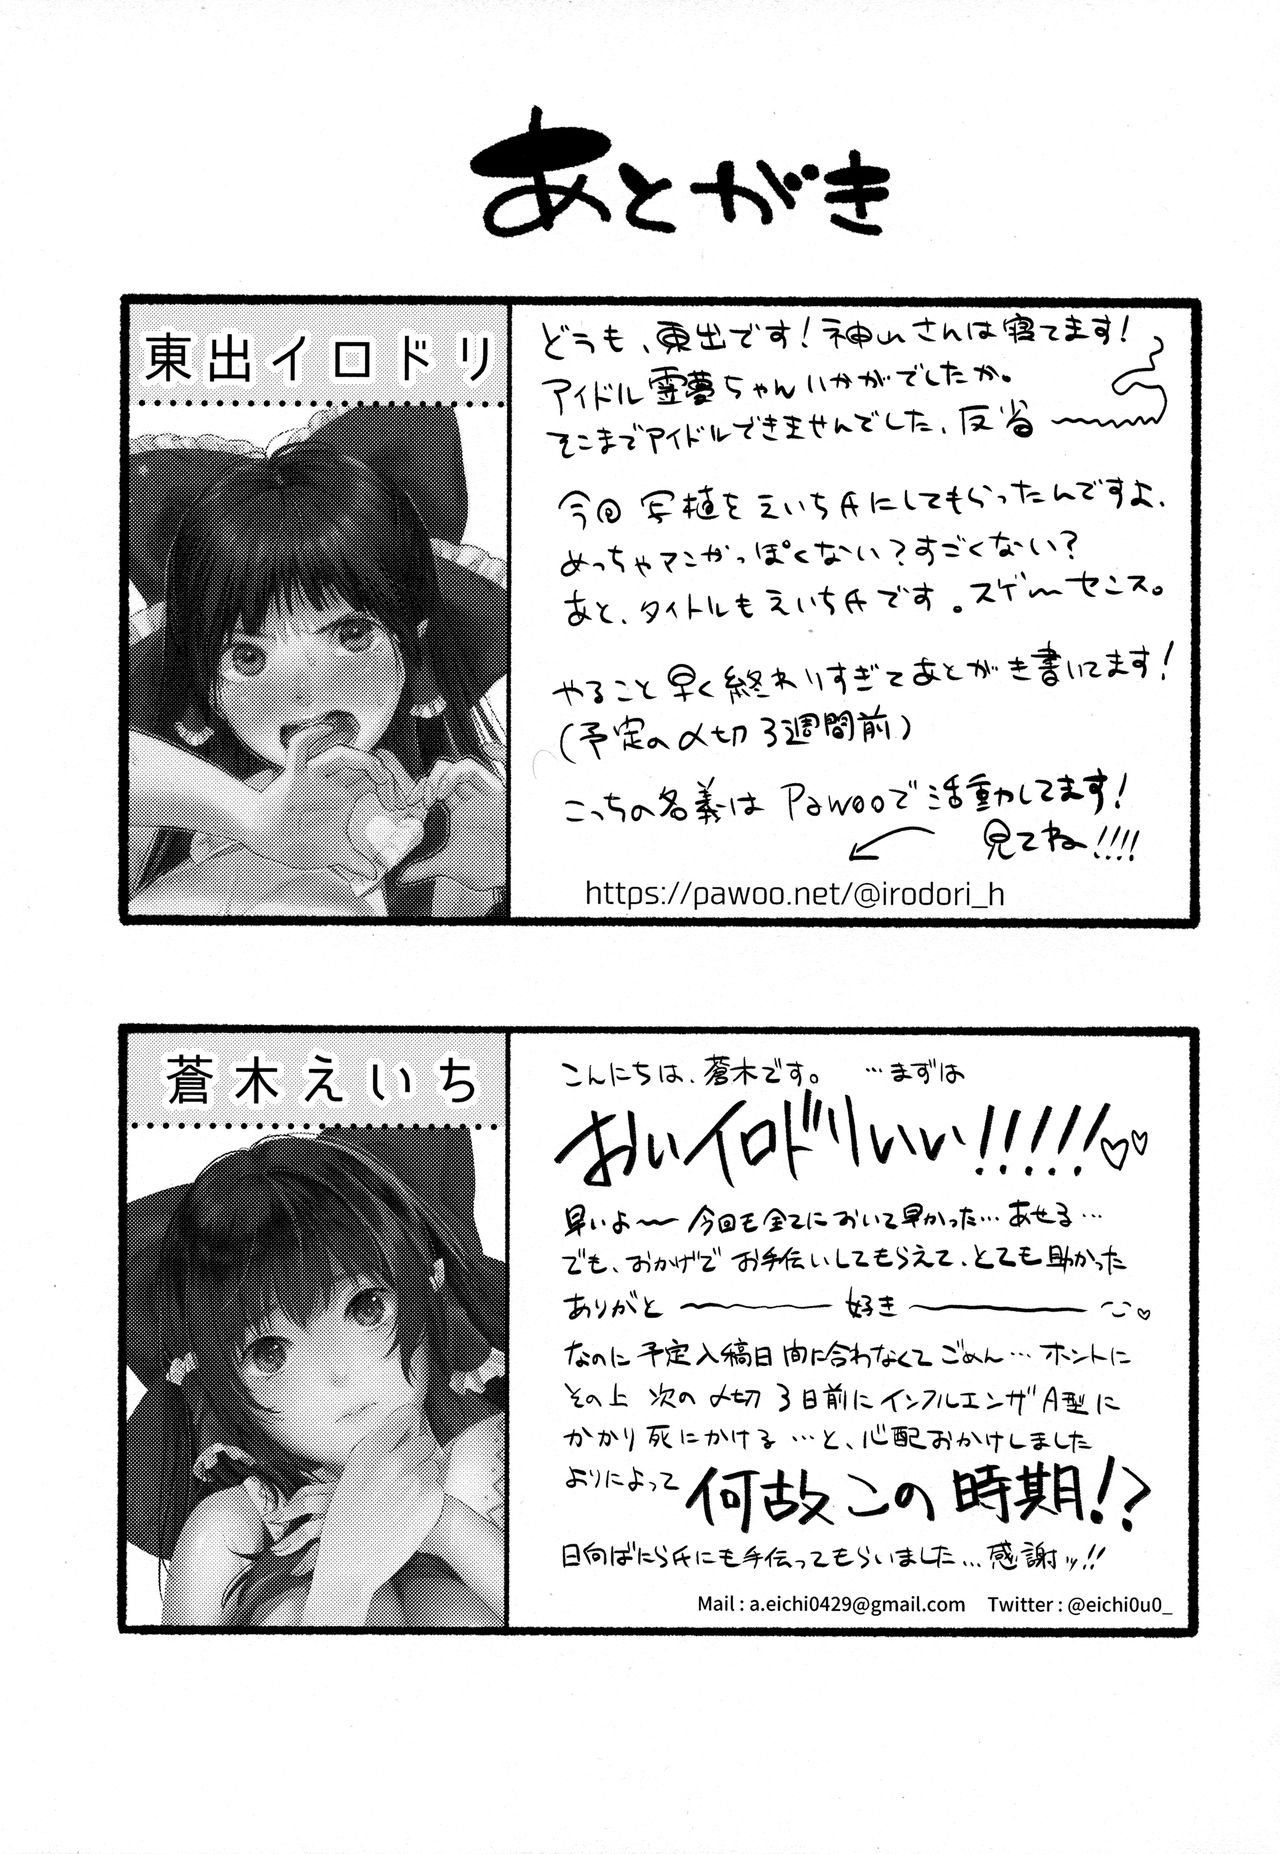 あとがき
東出イロドリ
どうも、東出です!神山さんは寝てます!
アイドル霊夢ちゃんいかがでしたか。
そこまでアイドルできませんでした、反省
今回写植をえいち氏にしてもらったんですよ、
めっちゃマンガっぽくない?すごくない?
あと、タイトルもえいち氏です。スゲ〜センス。
やること早く終わりすぎてあとがき書いてます!
(予定の〆切3週間前)
こっちの名義はPawooで活動してます!
見てね!!!!
https://pawoo.net/@irodori_h
蒼木えいち
こんにちは、蒼木です。 …まずは
おいイロドリいい!!!!!♡♡
早いよ〜今回も全てにおいて早かった…あせる…
でも、おかげでお手伝いしてもらえて、とても助かった
ありがと〜好き〜♡
なのに予定入稿日間に合わなくてごめん…ホントに
その上次の〆切3日前にインフルエンザA型に
かかり死にかける…と、心配おかけしました
よりによって何故この時期!?
日向ばにら氏にも手伝ってもらいました…感謝ッ!!
Mail : a.eichi0429@gmail.com Twitter : @eichi0u0_